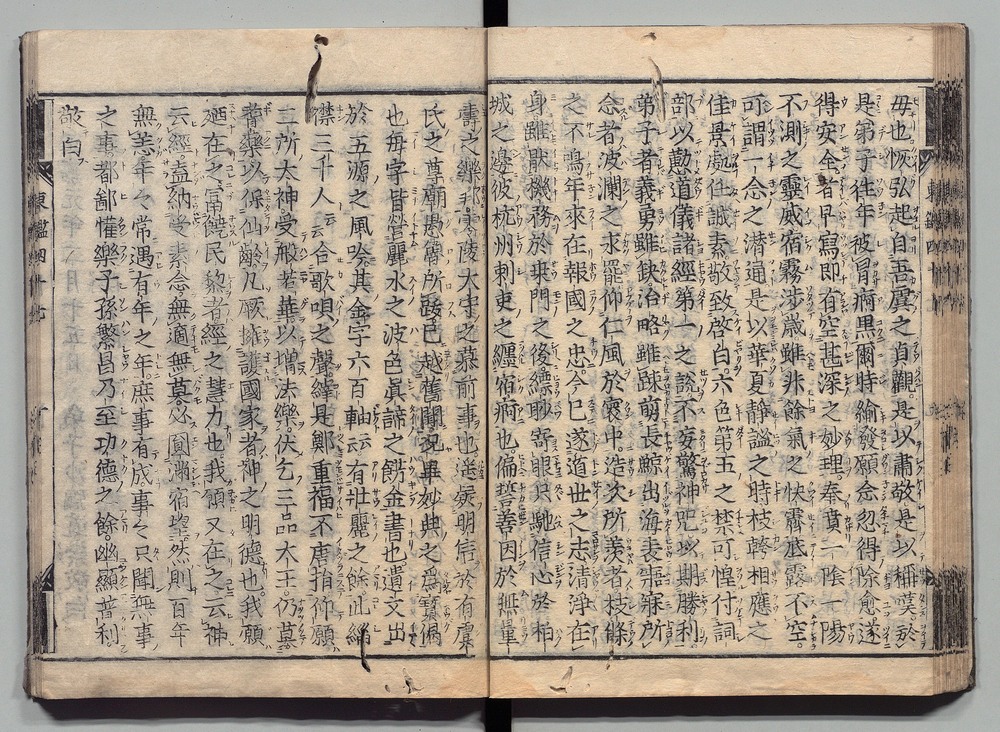 毋也恢弘起自吾虞之貞觀是以肅敬是以稱嘆於
是弟子往年被冒痾黒爾時縮發願念忽得除愈遂
得安全者早寫即有空甚深之妙理奉賁一陰一陽
不測之靈威宿霧渉歳雖非餘氣之快霽底露不空
可謂一念之潜通是以華夏静謐之時枝幹相應之
佳景處任誠素敬致啓白六色第五之禁可惶付詞
部以懃道儀諸經第一之談不妄驚神咒以期勝利
弟子者義勇雖鈌治略雖踈前長鯨出海表寤寐所
念者波瀾之永罷仰仁風於寰中造次所羕者枝條
之不鳴年來在報國之忠今已遂遁世之志清淨在
身雖厭機務於乗門之後縹眇寄眼只馳信心於柏
城之邊彼杭州刺吏之纏宿痾也偏誓善因於無量
壽之樂邦零陵大守之慕前事也逆崇明信於有虞
氏之尊廟愚儔所跂已越舊聞況畢妙典之爲寳偈
也毎字皆瑩麗水之波色眞諦之餝金書也遺文出
於五源之風吟其金字六百軸云有壯麗之餘此緇
襟三千人云合歌唄之聲繹是鄭重福不唐指仰願
三所大神受般若華以增法樂伏乞二品大王仍莫
耆藥以保仙齢凡厥擁護國家者神之明德也我願
廼在之富饒民黎者經之慧力也我願又在之云神
云經盍納受素念無適無莫必圓滿宿望然則百年
無恙年々常遇有年之年庶事有成事々只聞無事
之事都鄙懽樂子孫繁昌乃至功德之餘幽顯普利
敬白
東鑑四十七